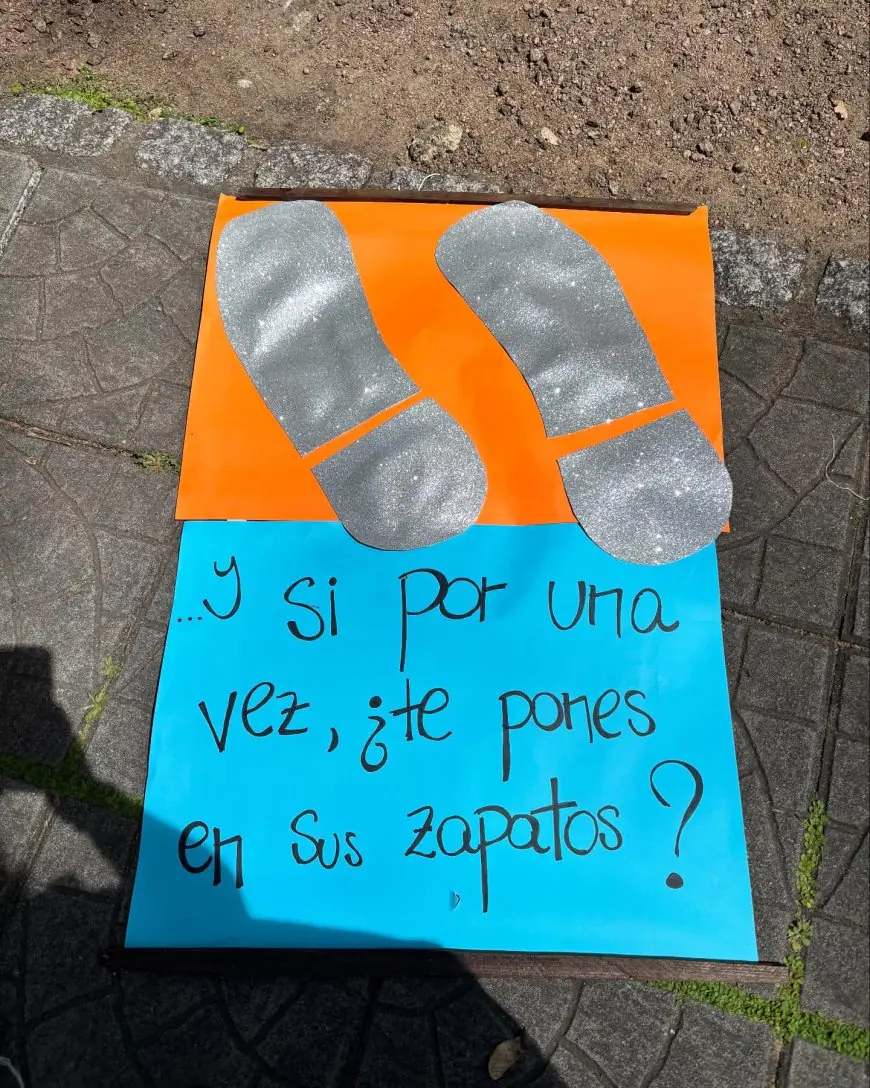 ...y si por una
vez, ¿te pones
en sus zapatos?